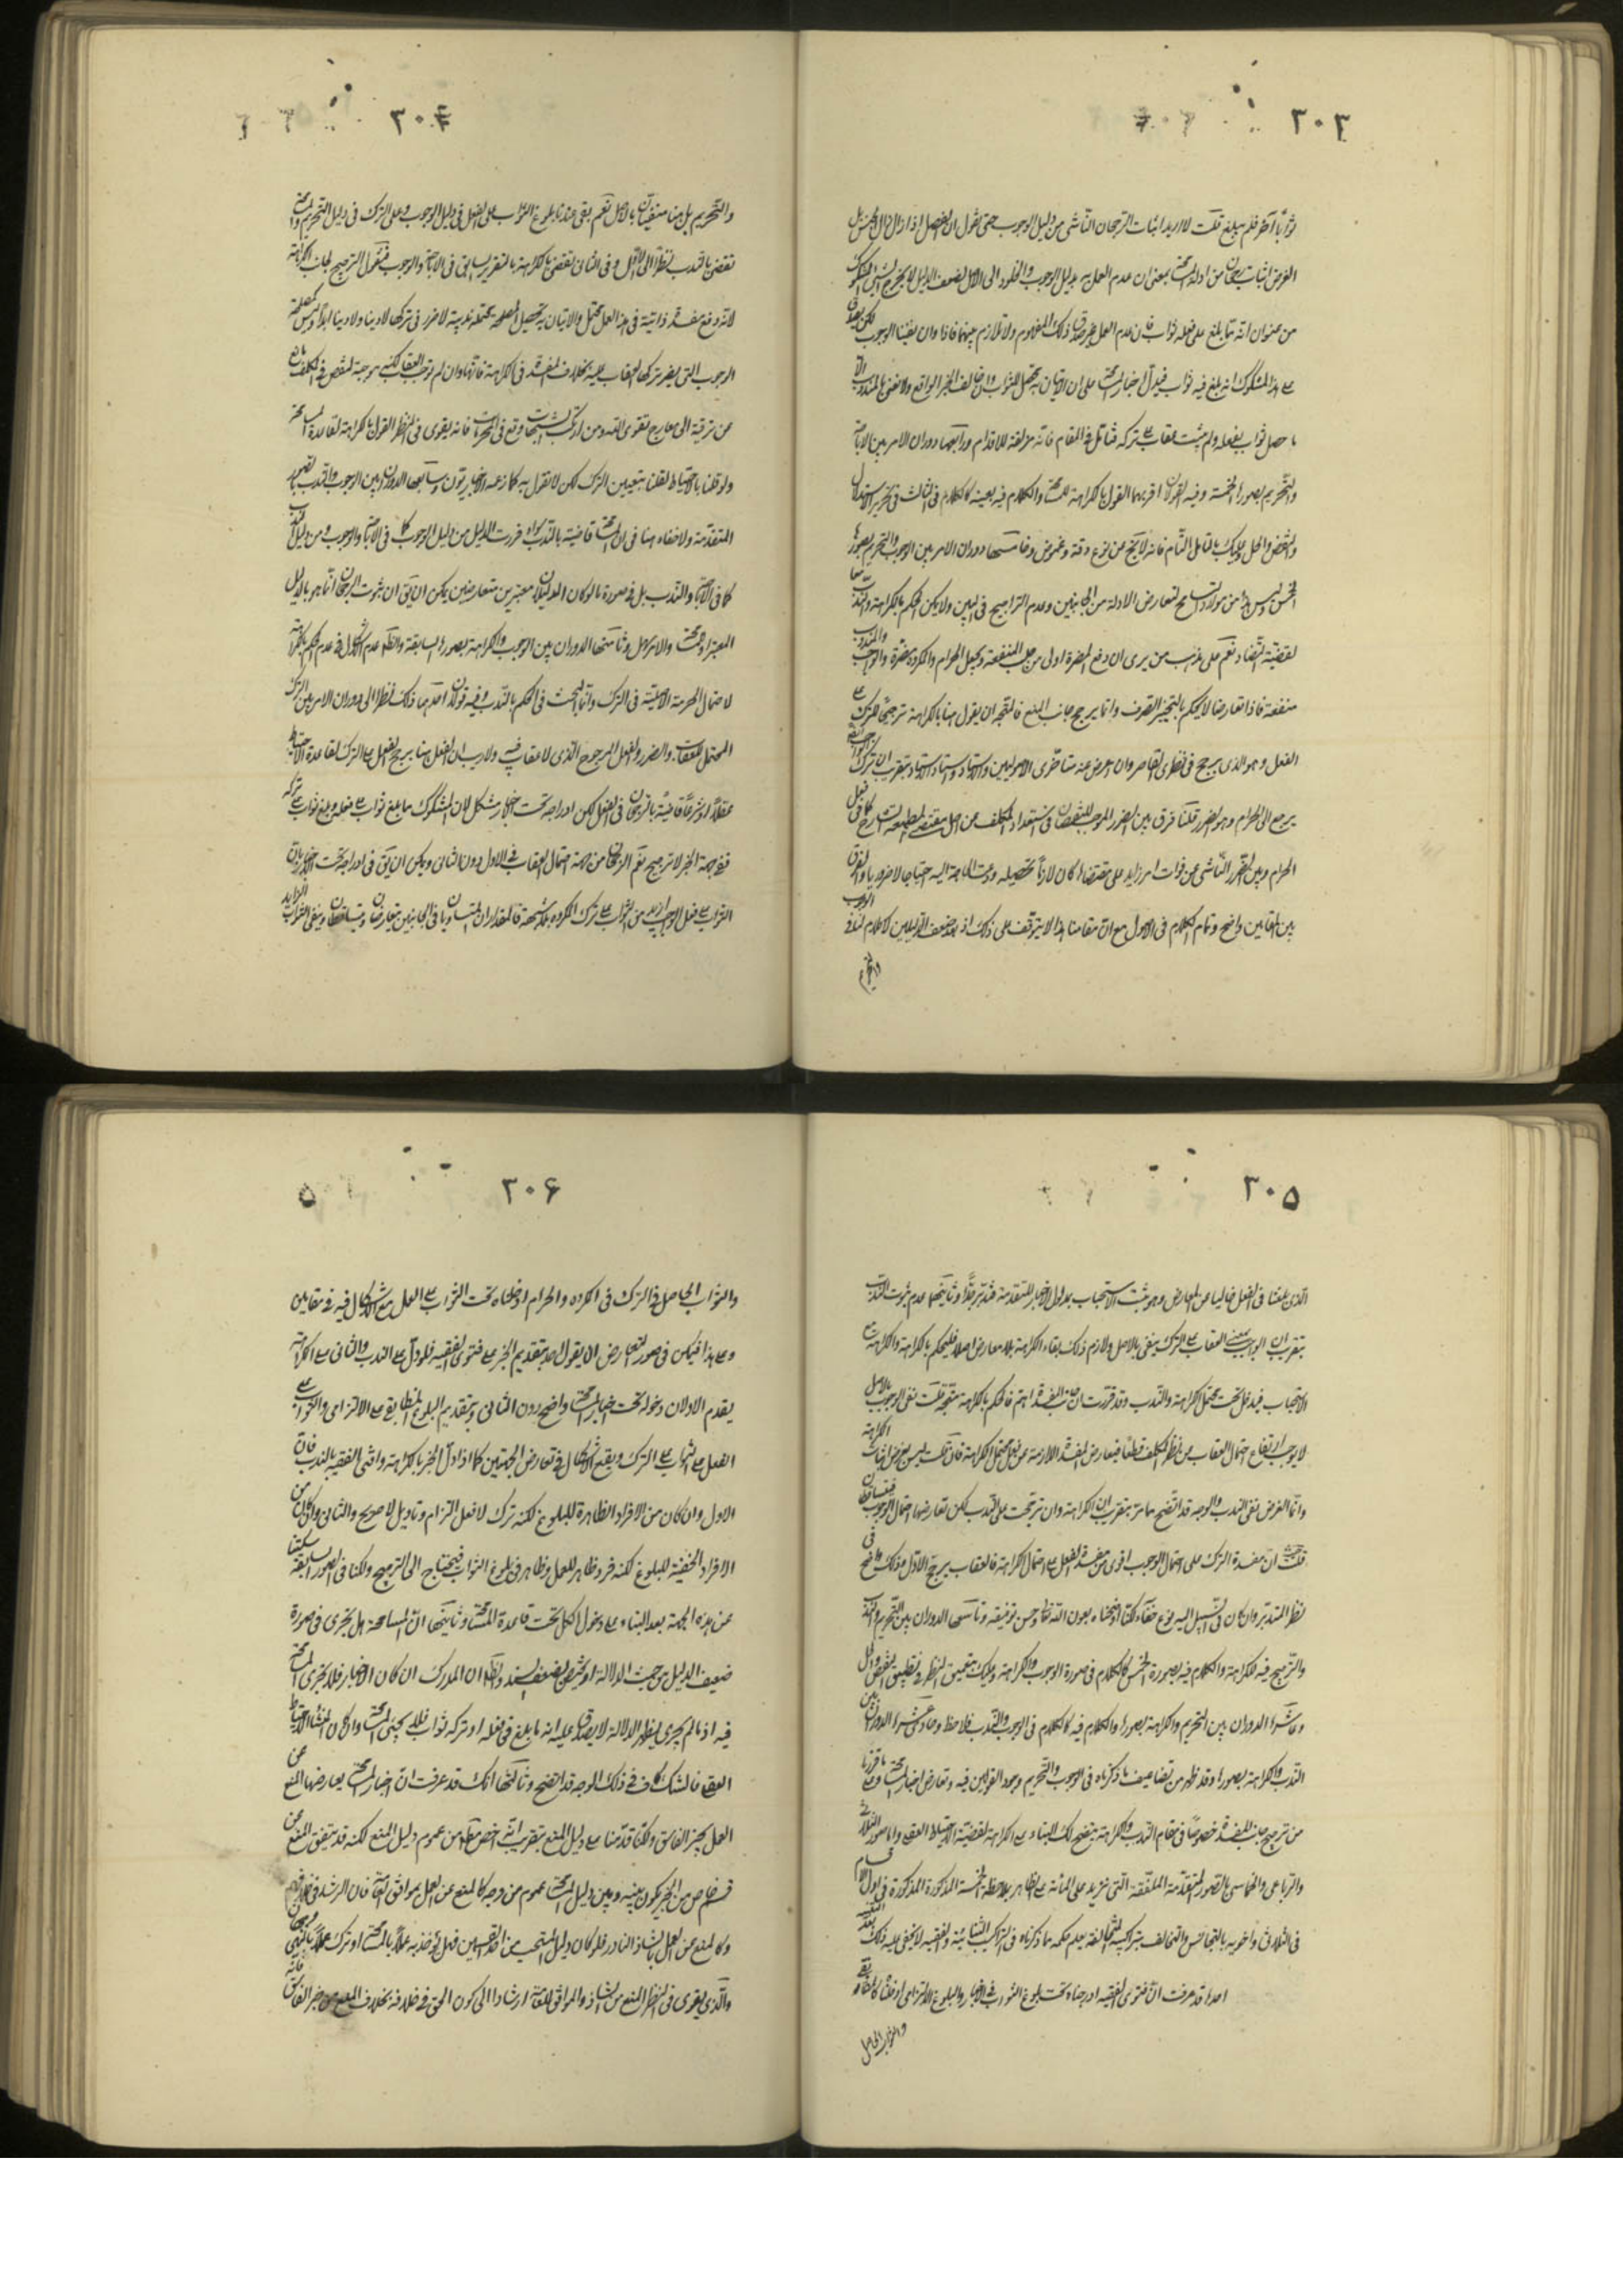 ٣٠٣
ثواباً آخر فلم يبلغ قلت لا اريد اثبات الرجحان الناشى من دليل الوجوب حتى تقول ان الفصل اذا زال زال الجنس بل
الغرض اثبات رجحان من ادلة بمعنى ان عدم العمل بدليل الوجوب والخلود الى الاصل لضعف الدليل لا يخرج الشىء المشكوك
من عنوان انه مما بلغ على فعله ثواب فان عدم العمل غير عدم صدق ذلك المفهوم ولا تلازم بينهما فاذا وان نفينا الوجوب لكن يصدق
على هذا المشكوك انه بلغ فيه ثواب فيدل اخبار على ان الاتيان به محصل للثواب وان خالف الخبر الواقع ولا نعنى بالمندوب الا
ما حصل ثواب بفعله ولم يثبت عقاب على تركه فتأمل فى المقام فانه مزلقة للاقدام ورابعها دوران الامر بين الاباحة
والتحريم بصوره الخمسة وفيه القولان اقربهما القول بالكراهة والكلام فيه بعينه كالكلام فى الثالث فى تحرير الاستدلال
والنقض والحل وعليك بالتأمل التام فانه لا يخ من نوع دقة وغموض وخامسها دوران الامر بين الوجوب والتحريم بصوره
الخمس وليس هذا من موارد التسامح لتعارض الادلة من الجانبين وعدم الترجيح فى البين ولا يمكن الحكم بالكراهة والندب معا
لقضية التضاد نعم على مذهب من يرى ان دفع المضرة اولى من جلب المنفعة ويجعل الحرام والمكروه مضرة والواجب والمندوب
منفعة فاذا تعارضا لا يحكم بالتخيير الصرف وانما يرجح جانب الدفع فالمتجه ان يقول هنا بالكراهة ترجيحاً للترك على
الفعل وهو الذى يرجح فى نظرى القاصر وان اعرض عنه متأخرى الاصوليين والاستاد واستاد الاستاد بتقريب ان ترك الواجب
يرجع الى الحرام وهو الضرر قلنا فرق بين الضرر الموجب للنقصان فى استعداد المكلف عن اصل مقتضى الطبيعة كما فى فعل
الحرام وبين الضرر الناشى عن فوات امر زايد على مقتضاها كان لازماً تحصيله وعدت الحاجة اليه احتياجا لا ضروريا والفرق
بين المقامين واضح وتمام الكلام فى الاصول مع ان مقامنا هذا لا يتوقف على ذلك اذ بعد ضعف الدليلين لا كلام لنا فى الوجوب
والتحريم
٣٠۴
والتحريم بل هنا منفيان بالاصل نعم بقى عندنا بلوغ الثواب على الفعل فى دليل الوجوب وعلى الترك فى دليل التحريم
نقضى بالندب نظراً الى الاول وفى الثانى نقضى بالكراهة بالتقرير السابق فى الاباحة والوجوب فنقول الترجيح لجانب الكراهة
لانه دفع مفسدة ذاتية فى هذا العمل محتمل والاتيان به تحصيل المصلحة محتملة ندبية لا ضرر فى تركها لا دينا ولا دنيا ابداً وليس كمصلحة
الوجوب التى يضر تركها لعقاب عليه بخلاف المفسدة فى الكراهة فانها وان لم توجب العقاب لكنه موجبة لنقص فى المكلف مانع
عن ترقية الى معارج تقوى الله ومن ارتكب الشبهات وقع فى المحرمات فانه يقوى فى النظر القول بالكراهة لقاعدة
ولو قلنا بالاحتياط لقلنا بتعيين الترك لكن لا نقول به كما زعمه الاخباريون وسابعها الدوران بين الوجوب والندب بصوره
المتقدمة ولا خفاء هنا فى ان قاضية بالندب سواء قررت الدليل من دليل الوجوب كما فى الاباحة والوجوب ومن دليل الندب
كما فى الاباحة والندب بل فى صورة ما لو كان الدليلان معتبرين متعارضين يمكن ان يق ان ثبوت الرجحان انما هو بالدليل
المعتبر والامر سهل وثامنها الدوران بين الوجوب والكراهة بصوره السابقة والظ عدم الاشكال فى عدم الحكم بالكراهة
لاحتمال الحرمة الاصلية فى الترك وانما البحث فى الحكم بالندب وفيه قولان احدهما ذلك نظرا الى دوران الامر بين الترك
المحتمل للعقاب والضرر والفعل المرجوح الذى لا عقاب فيه ولا ريب ان العقل هنا يرجح الفعل على الترك لقاعدة الاحتياط
عقلاً او شرعاً قاضية بالرجحان فى الفعل لكن ادراجه تحت اخبار مشكل لان المشكوك مما بلغ ثواب على فعله وبلغ ثواب على تركه
فمن جهة الخبر لا ترجيح نعم الرجحان من جهة احتمال العقاب فى الاول دون الثانى ويمكن ان يق فى ادراجه تحت الاخبار بان
الثواب على فعل الواجب ازيد من الثواب على ترك المكروه بلا شبهة فالمقداران المتساويان فى الجانبين يتعارضان ويتساقطان ويبقى الثواب الزايد
٣٠۵
الذى بلغنا فى الفعل خاليا عن المعارض وهو يثبت الاستحباب بمدلول الاخبار المتقدمة فتدبر جداً وثانيهما عدم ثبوت الندب
بتقريب ان الوجوب بمعنى العقاب على الترك ينفى بالاصل ولازم ذلك بقاء الكراهة بلا معارض اصلا فليحكم بالكراهة والكراهة مع
الاستحباب فيدخل تحت محتمل الكراهة والندب وقد قررت ان جانب المفسدة اهم فالحكم بالكراهة متجه قلت نفى الوجوب بالاصل
لا يوجب ارتفاع احتمال العقاب عن نظر المكلف قطعاً فيعارض المفسدة اللازمة عن فعل محتمل الكراهة فان قلت ليس غرض اثبات الكراهة
وانما الغرض نفى الندب والوجه قد اتضح مما مر بتقريب ان الكراهة وان ترجحت على الندب لكن تعارضها احتمال الوجوب فيتساقطان
قلت ان مفسدة الترك على احتمال الوجوب اقوى من مفسدة الفعل على احتمال الكراهة فالعقاب يرجح الاول وذلك واضح فى
نظر المتدبر وان كان فى السبيل اليه نوع خفاء لكنا اوضحناه بعون الله تعالى وحسن توفيقه وتاسعها الدوران بين التحريم والندب
والترجيح فيه للكراهة والكلام فيه بصوره الخمس كالكلام فى صورة الوجوب والكراهة وعليك بتعميق النظر فى تطبيق النقض والحل
وعاشرها الدوران بين التحريم والكراهة بصورها والكلام فيه كالكلام فى الوجوب والندب فلاحظ وحادى عشرها الدوران بين
الندب والكراهة بصورها وقد ظهر من تضاعيف ما ذكرناه فى الوجوب والتحريم وجود القولين فيه وتعارض اخبار وما قررنا
من ترجيح جانب المفسدة خصوصاً فى مقام الندب والكراهة يتضح لك البناء على الكراهة لقضية الاحتياط العقلى واما صور الثلاثى
والرباعى والخماسى بالصور المتقدمة الملفقة التى تزيد على المائة على الظاهر بملاحظة الخمسة المذكورة المذكورة فى اول الاقسام
فى الثلاثى واخويه بالتجانس والتخالف بتراكيبه المختلفة يعلم حكمه مما ذكرناه فى التراكيب الثنائية والفقيه لا يخفى عليه ذلك
احدها قد عرفت ان فتوى الفقيه ادرجناه تحت بلوغ الثواب فى الاخبار والبلوغ الالتزامى ادخلناه
والثواب الحاصل
٣٠۶
والثواب الحاصل فى الترك فى المكروه والحرام ادخلناه تحت الثواب على العمل مع الاشكال فيه فى مقامين
وعلى هذا فيمكن فى صور التعارض الا يقول احد بتقديم الخبر على فتوى الفقيه فلو دل على الندب والثانى على الكراهة
يقدم الاول لان دخوله تحت اخبار واضح دون الثانى وبتقديم البلوغ المطابقى على الالتزامى والثواب على
الفعل على الثواب على الترك ويقع الاشكال فى تعارض الجهتين كما اذا دل الخبر بالكراهة وافتى الفقيه بالندب فان
الاول وان كان من الافراد الظاهرة للبلوغ لكنه ترك لا فعل التزام وتاويل لا صريح والثانى وان كان من
الافراد الخفية للبلوغ لكنه فرد ظاهر للعمل وظاهر فى بلوغ الثواب فيحتاج الى الترجيح ولكنا فى الصور السابقة سكتنا
عن هذه الجهة بعد البناء على دخول الكل تحت قاعدة وثانيها ان المسامحة هل يجرى فى صورة
ضعيف الدليل من حيث الدلالة او يختص بضعف السند والظ ان المدرك ان كان الاخبار فلا يجرى
فيه اذ ما لم يجرى بظهر الدلالة لا يصدق عليه انه مما بلغ فى فعله او تركه ثواب فلا يجىء وان كان المنشأ الاحتياط
العقلى فالشك كاف فى ذلك الوجه قد اتضح وثالثها انك قد عرفت ان اخبار يعارضها المنع عن
العمل بخبر الفاسق ولكنا قدمنا على دليل المنع بتقريب انه اخص مطلقا من عموم دليل المنع لكنه قد يتفق المنع عن
قسم خاص من الخبر يكون بينه وبين دليل عموم من وجه كالمنع عن العمل بموافق العامة فان الرشد فى خلافهم
وكالمنع عن العمل بالشاذ النادر فلو كان دليل المستحب من احد القسمين فهل يؤخذ به عملاً او ترك عملاً بالنهى وجهان
والذى يقوى فى النظر المنع من الشاذ والموافق للعامة ارشادا الى كون الحق فى خلافه بخلاف المنع من خبر الفاسق فانه